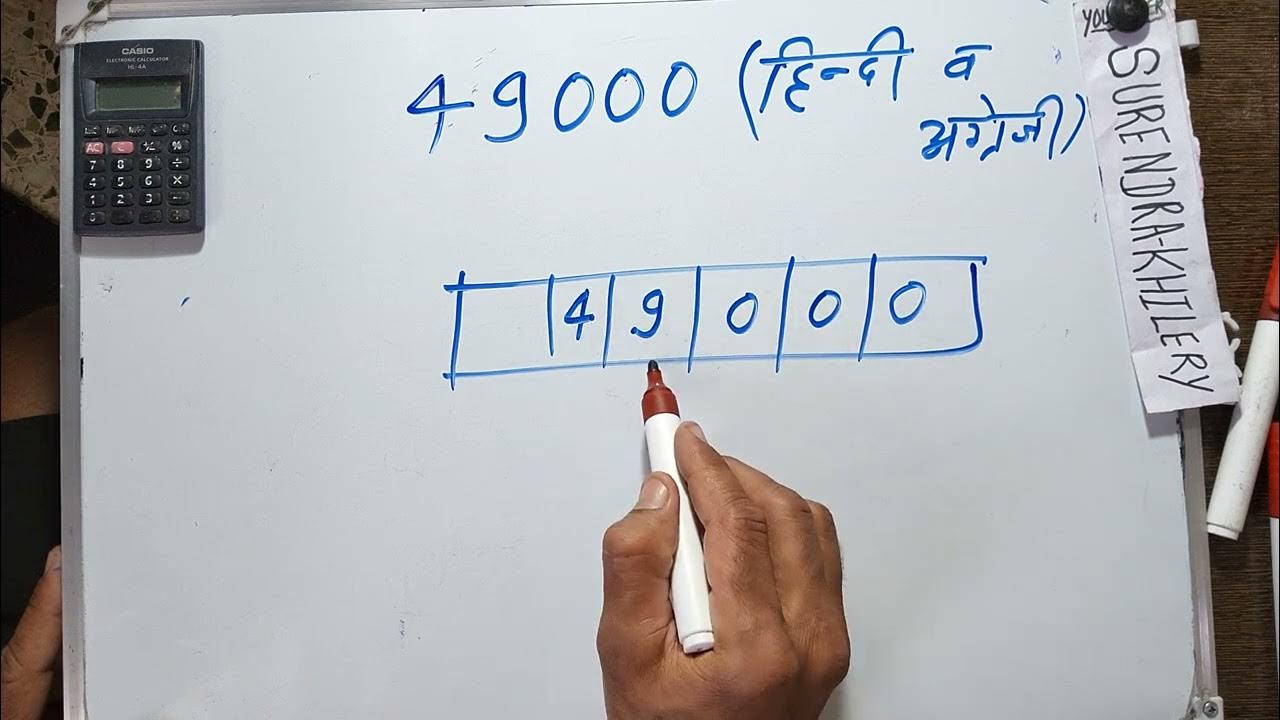 CASIO
ELECTRONIC CALCULATOR
HL-4A
AC C +/- %
7 8 9 ÷
4 5 6 ×
1 2 3 −
0
49000 (हिन्दी व
अग्रेजी)
4 9 0 0 0
SURENDRA-KHILERY